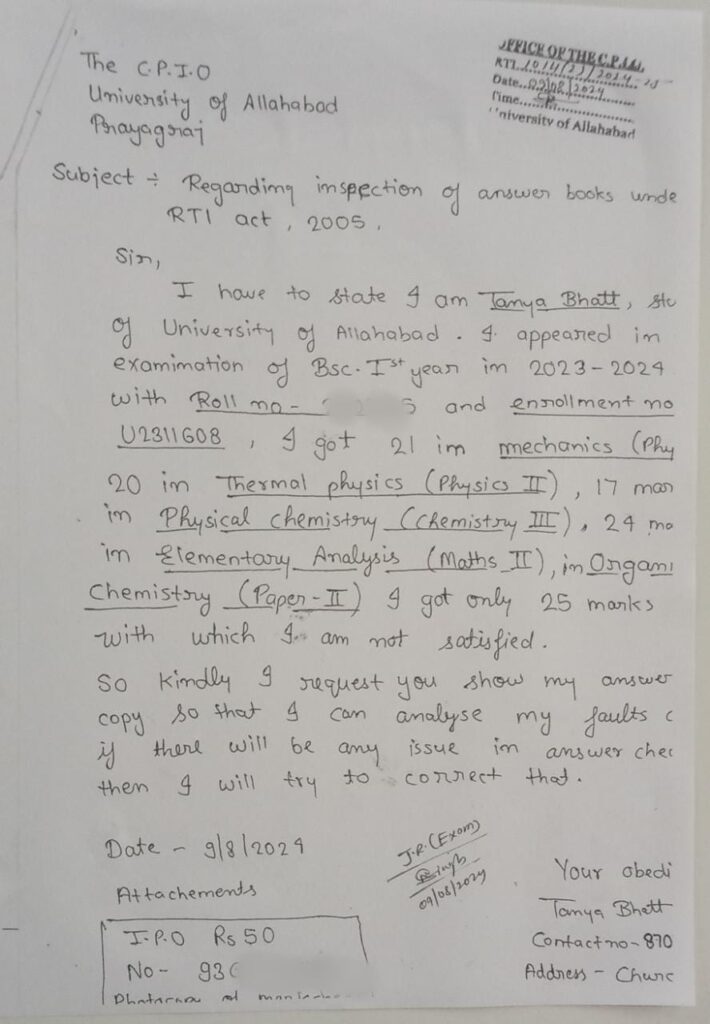 The C.P.I.O
University of Allahabad
Prayagraj
OFFICE OF THE C.P.I.O.
RTI
Date 09/08/2024
Time
University of Allahabad
Subject ÷ Regarding inspection of answer books unde
RTI act, 2005,
Sir,
I have to state I am Tanya Bhatt, stu
of University of Allahabad. I appeared in
examination of Bsc. Ist year in 2023-2024
with Roll no- 5 and enrollment no
U2311608, I got 21 in mechanics (Phy
20 in Thermal physics (Physics II), 17 mar
in Physical chemistry (Chemistry III), 24 ma
in Elementary Analysis (Maths II), in Organi
Chemistry (Paper-II) I got only 25 marks
with which I am not satisfied.
So kindly I request you show my answer
copy so that I can analyse my faults
if there will be any issue in answer chec
then I will try to correct that.
Date - 9/8/2024
J.R. (Exam)
09/08/2024
Attachements
I.P.O Rs 50
No- 930
Your obedi
Tanya Bhatt
Contact no- 870
Address - Churc